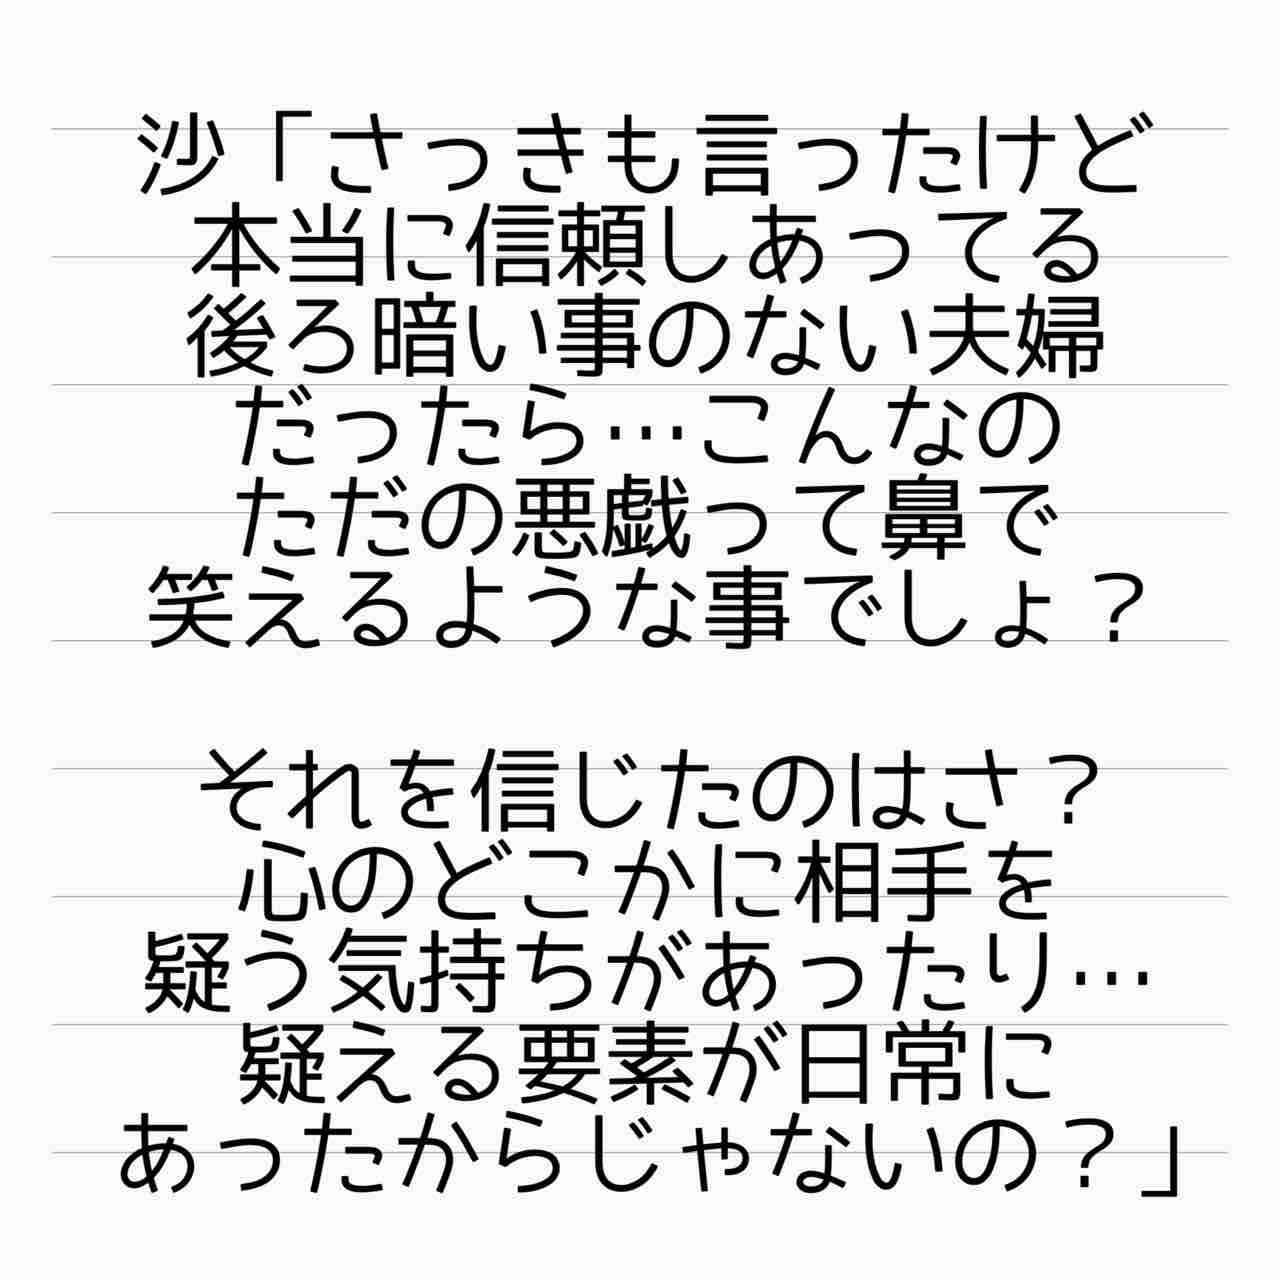 沙「さっきも言ったけど
本当に信頼しあってる
後ろ暗い事のない夫婦
だったら…こんなの
ただの悪戯って鼻で
笑えるような事でしょ？
それを信じたのはさ？
心のどこかに相手を
疑う気持ちがあったり…
疑える要素が日常に
あったからじゃないの？」